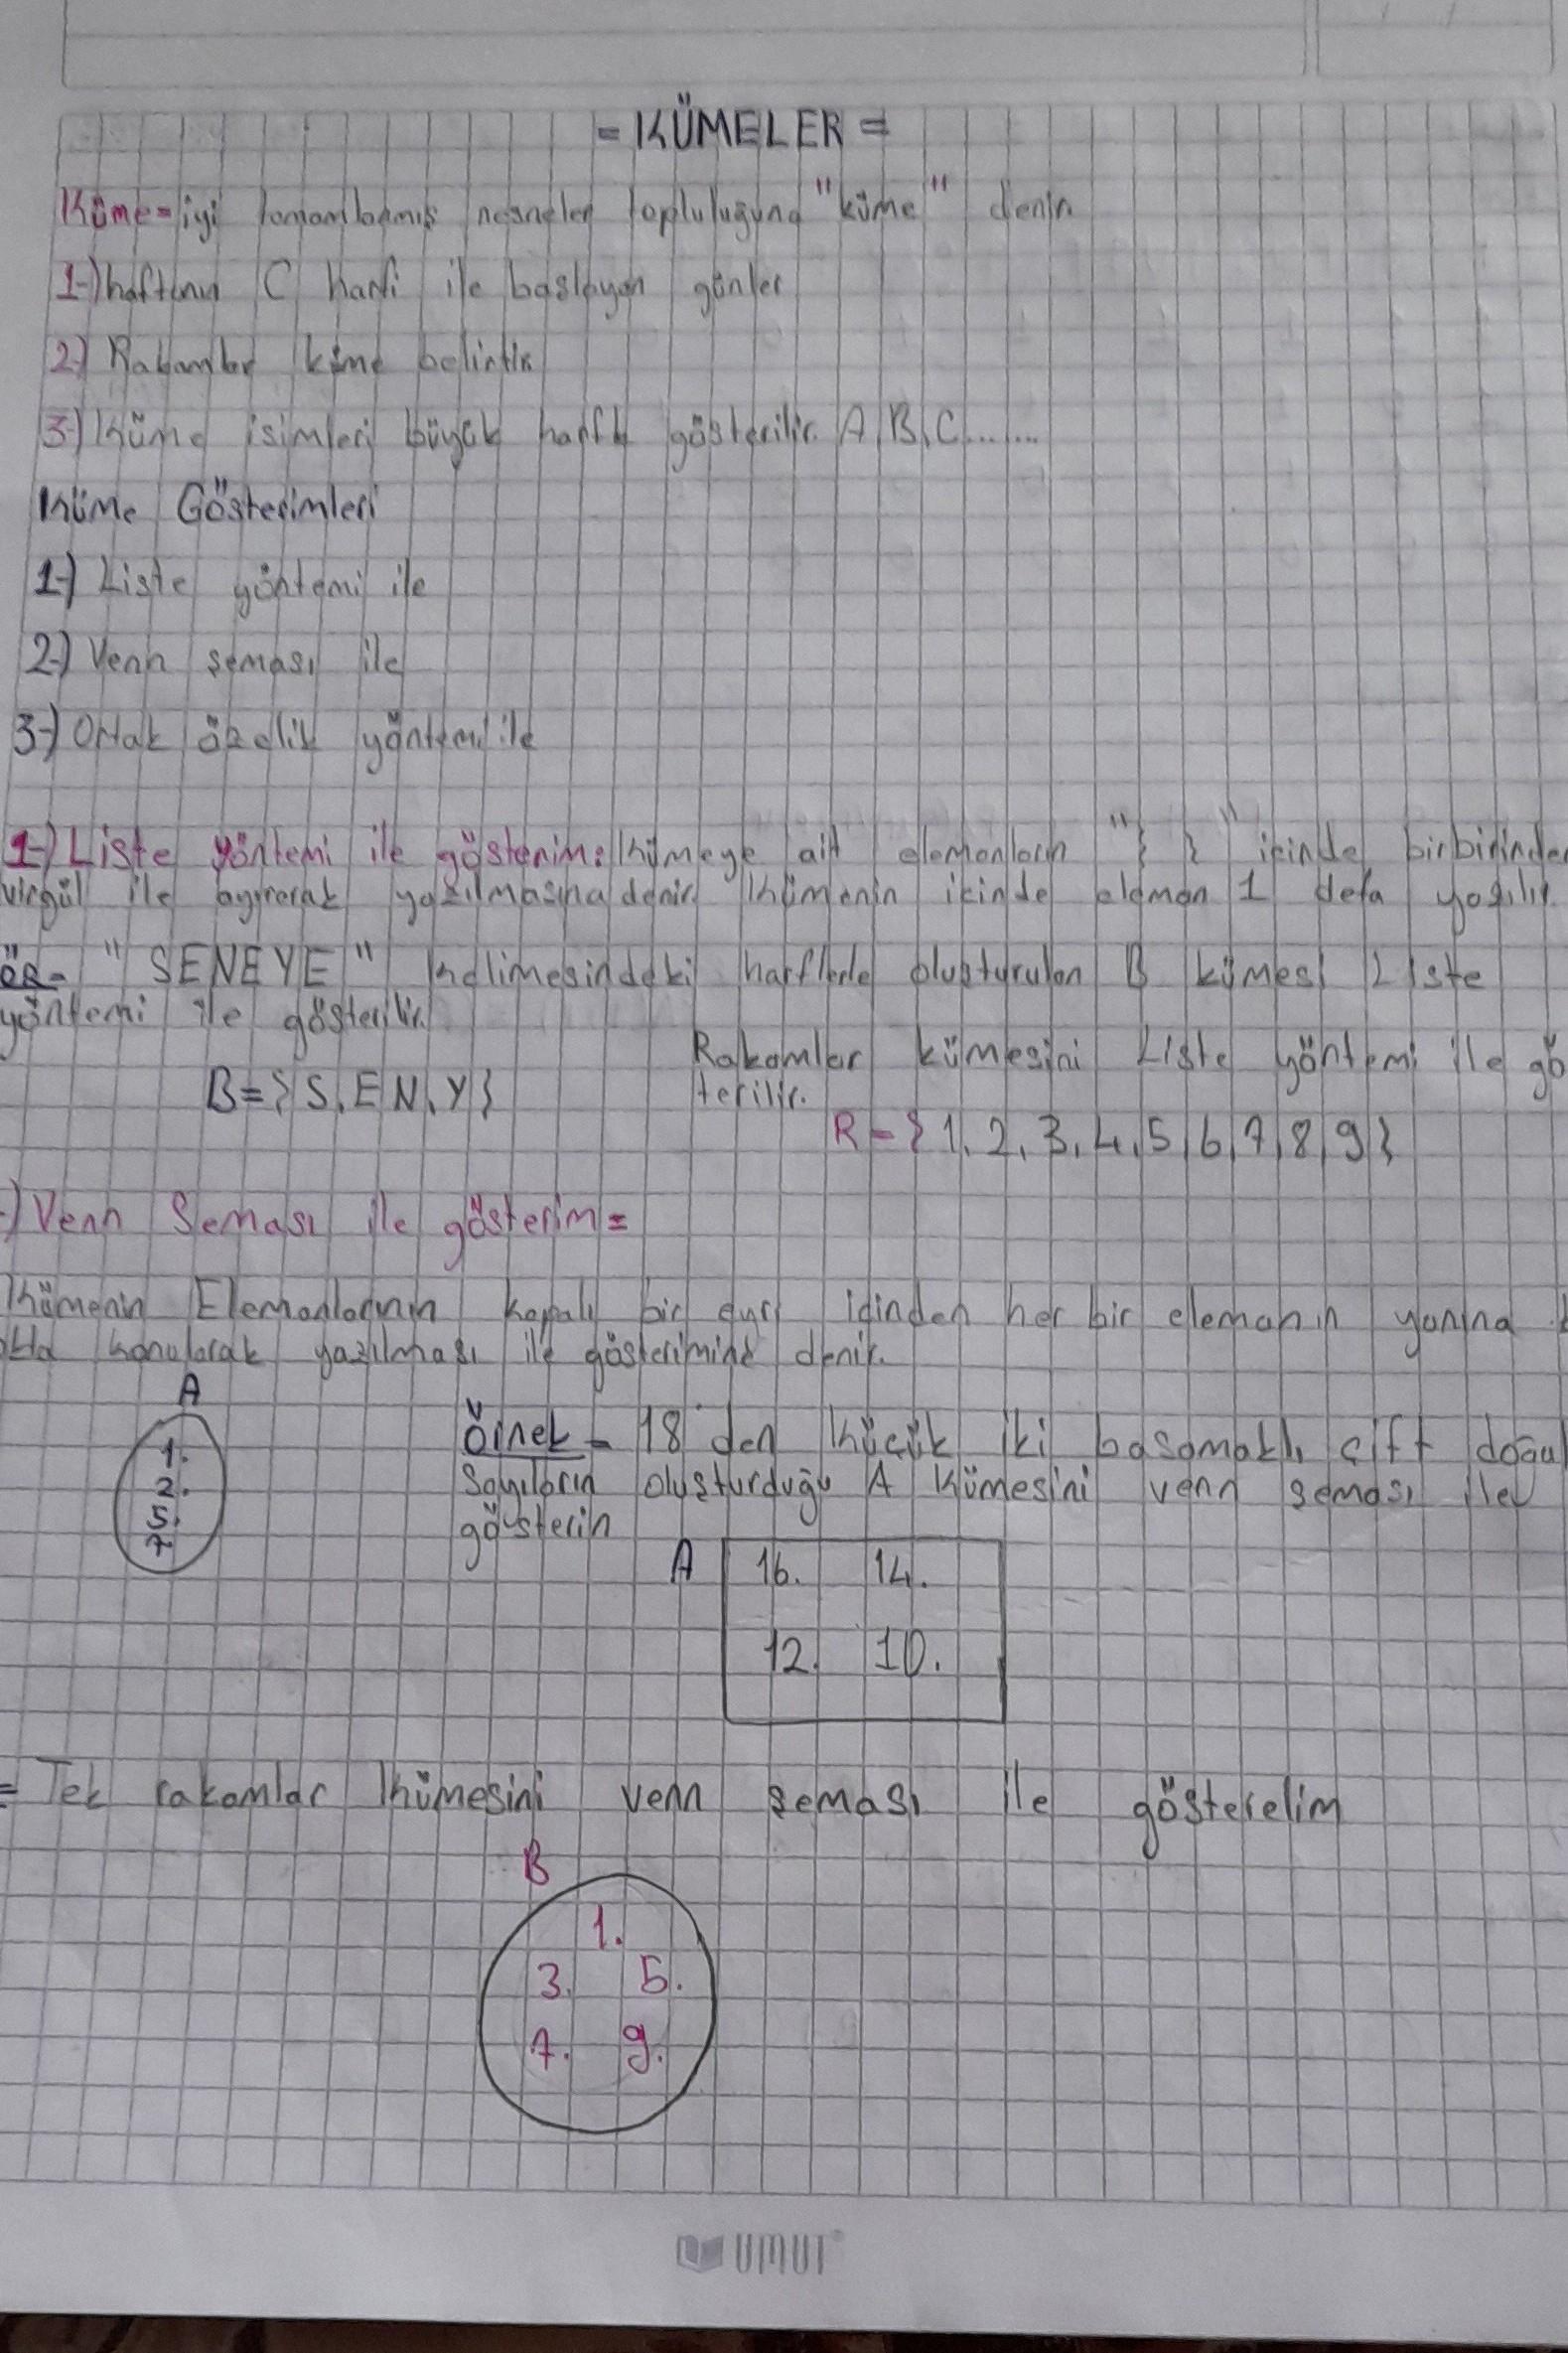 = KÜMELER =
Küme = iyi tanımlanmış nesneler topluluğuna "küme" denir
1-) haftanın C harfi ile başlayan günler
2-) Rakamlar küme belirtir
3-) Küme isimleri büyük harfle gösterilir. A, B, C.......
Küme Gösterimleri
1-) Liste yöntemi ile
2-) Venn şeması ile
3-) Ortak özellik yöntemi ile
1-) Liste yöntemi ile gösterim: Kümeye ait elemanların "{ }" içinde birbirinden
virgül ile ayırarak yazılmasına denir. Kümenin içinde eleman 1 defa yazılır.
ÖR- "SENEYE" kelimesindeki harflerle oluşturulan B kümesi Liste
yöntemi ile gösterilir.
B = {S, E, N, Y}
Rakamlar kümesini Liste yöntemi ile gö
terilir.
R = {1, 2, 3, 4, 5, 6, 7, 8, 9}
-) Venn Şeması ile gösterim =
Kümenin Elemanlarının kapalı bir eyri içinden her bir elemanın yanına
okta konularak yazılması ile gösterimine denir.
A
1.
2.
5.
7.
Örnek - 18'den küçük iki basamaklı çift doğal
Sayıların oluşturduğu A Kümesini venn şeması ile
gösterin
A
16. 14.
12. 10.
= Tek rakamlar Kümesini venn şeması ile gösterelim
B
1.
3. 5.
7. 9.
UMUT